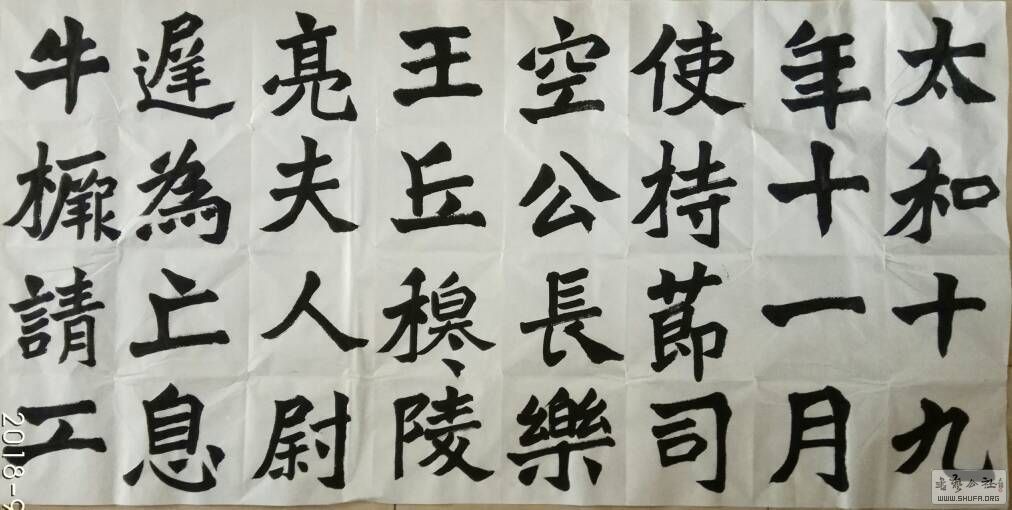 太和十九
年十一月
使持節司
空公長樂
王丘穆陵
亮夫人尉
遲為亡息
牛橛請工
2018-9
書藝公社
WWW.SHUFA.ORG